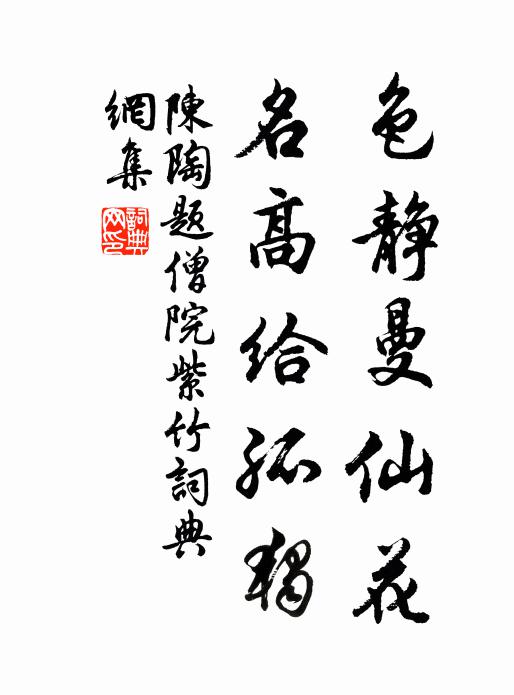 色静曼仙花
名高给孤獨
陳陶題僧院紫竹詞典
網集
詞典网印